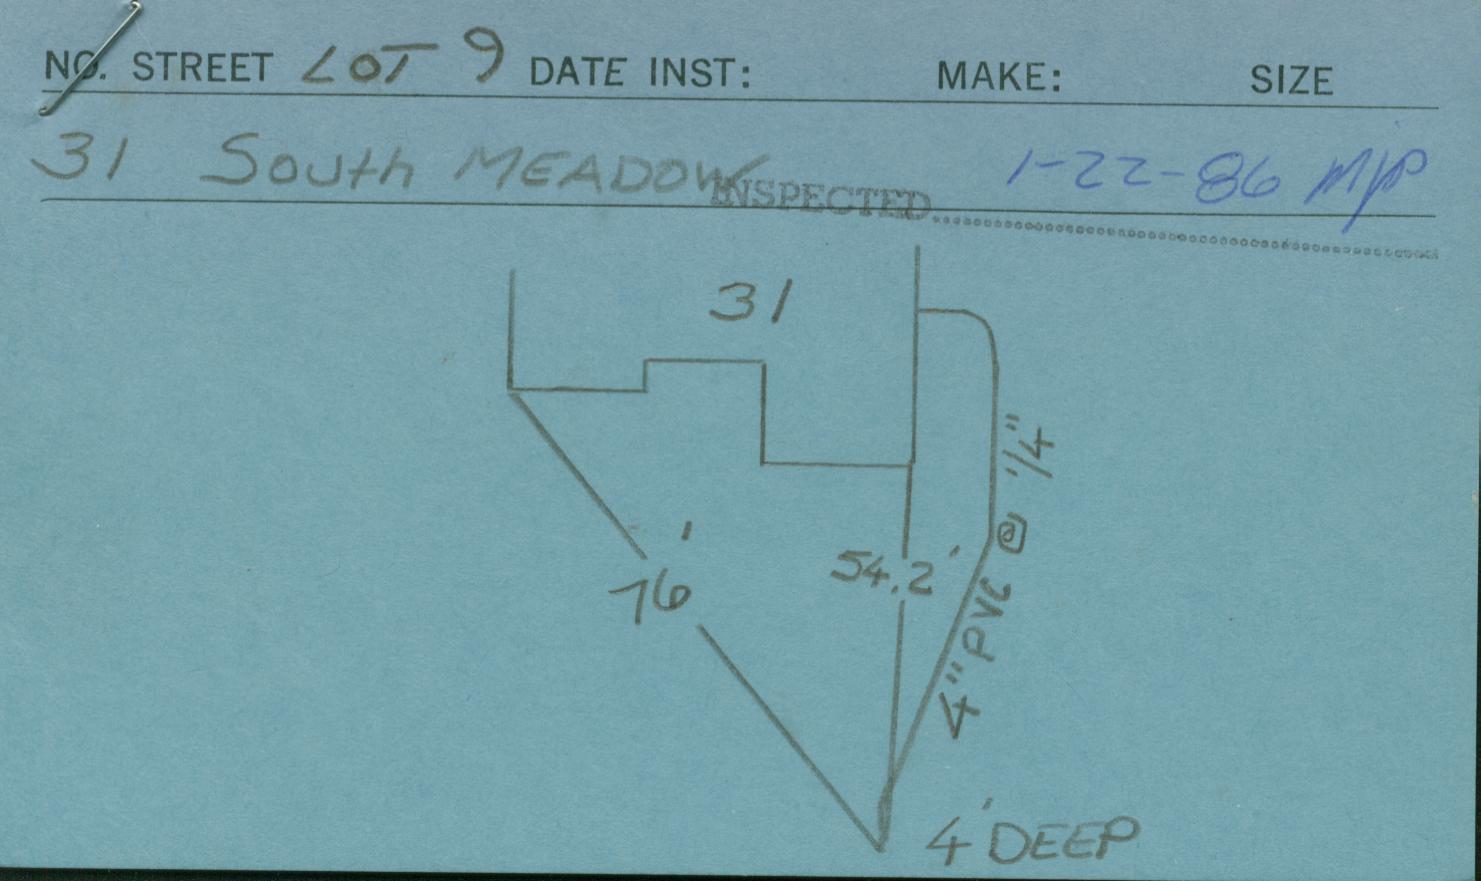 NO. STREET LOT 9 DATE INST: MAKE: SIZE
31 South MEADOW 1-22-86 MP
INSPECTED
31
76'
54.2'
4" PVC @ 1/4"
4' DEEP